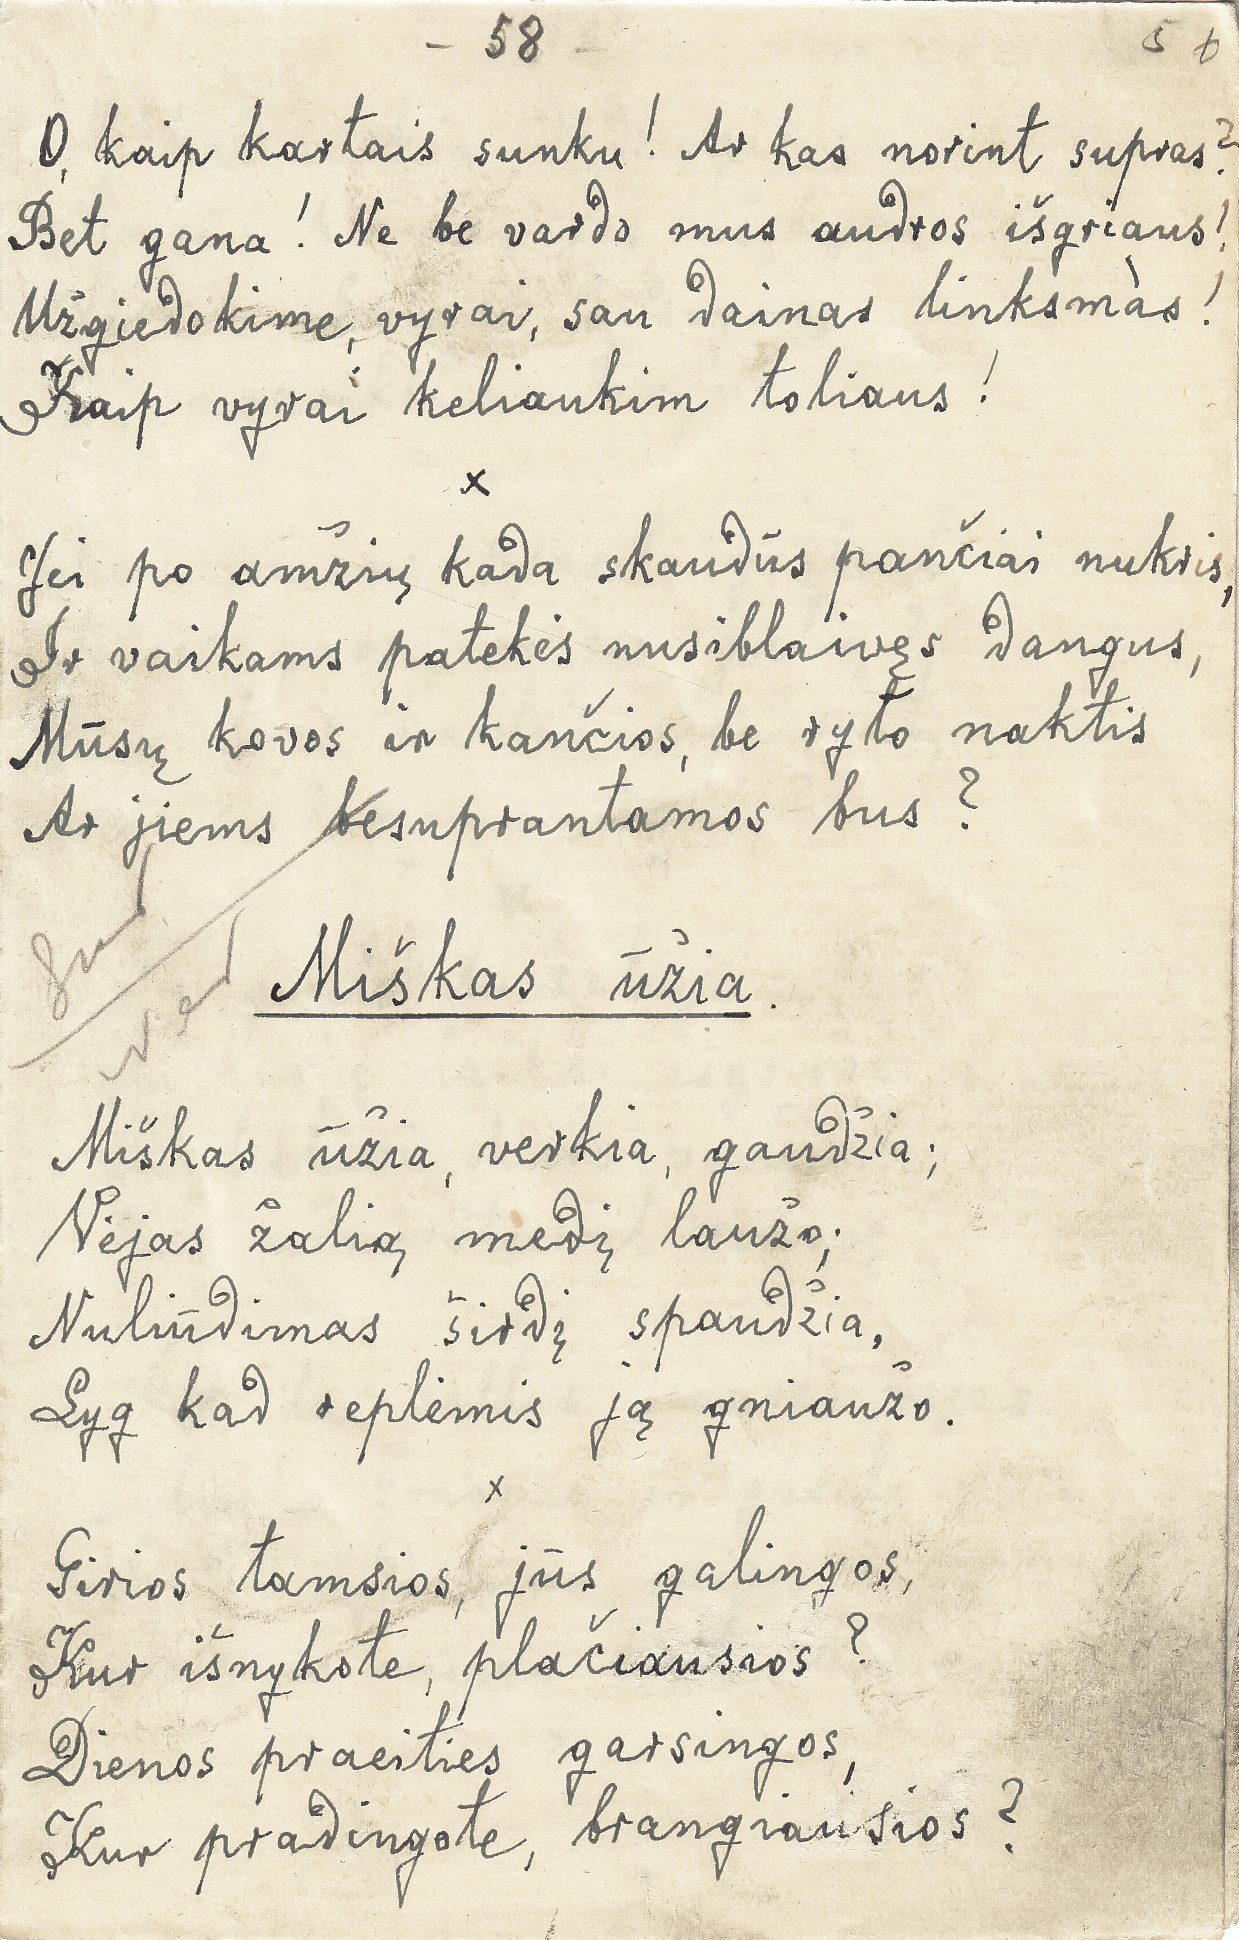 - 58 -
O, kaip kartais sunku! Ar kas norint supras?
Bet gana! Ne be vardo mus audros išgriaus!
Užgiedokime, vyrai, sau dainas linksmàs!
Kaip vyrai keliaukim toliaus!
x
Jei po amžių kada skaudūs pančiai nukris,
Ir vaikams patekės nusiblaivęs dangus,
Mūsų kovos ir kančios, be ryto naktis
Ar jiems besuprantamos bus?
Miškas ūžia.
Miškas ūžia, verkia, gaudžia;
Vėjas žalią medį laužo;
Nuliūdimas širdį spaudžia,
Lyg kad replėmis ją gniaužo.
x
Girios tamsios, jūs galingos,
Kur išnykote, plačiausios?
Dienos praeities garsingos,
Kur pradingote, brangiausios?